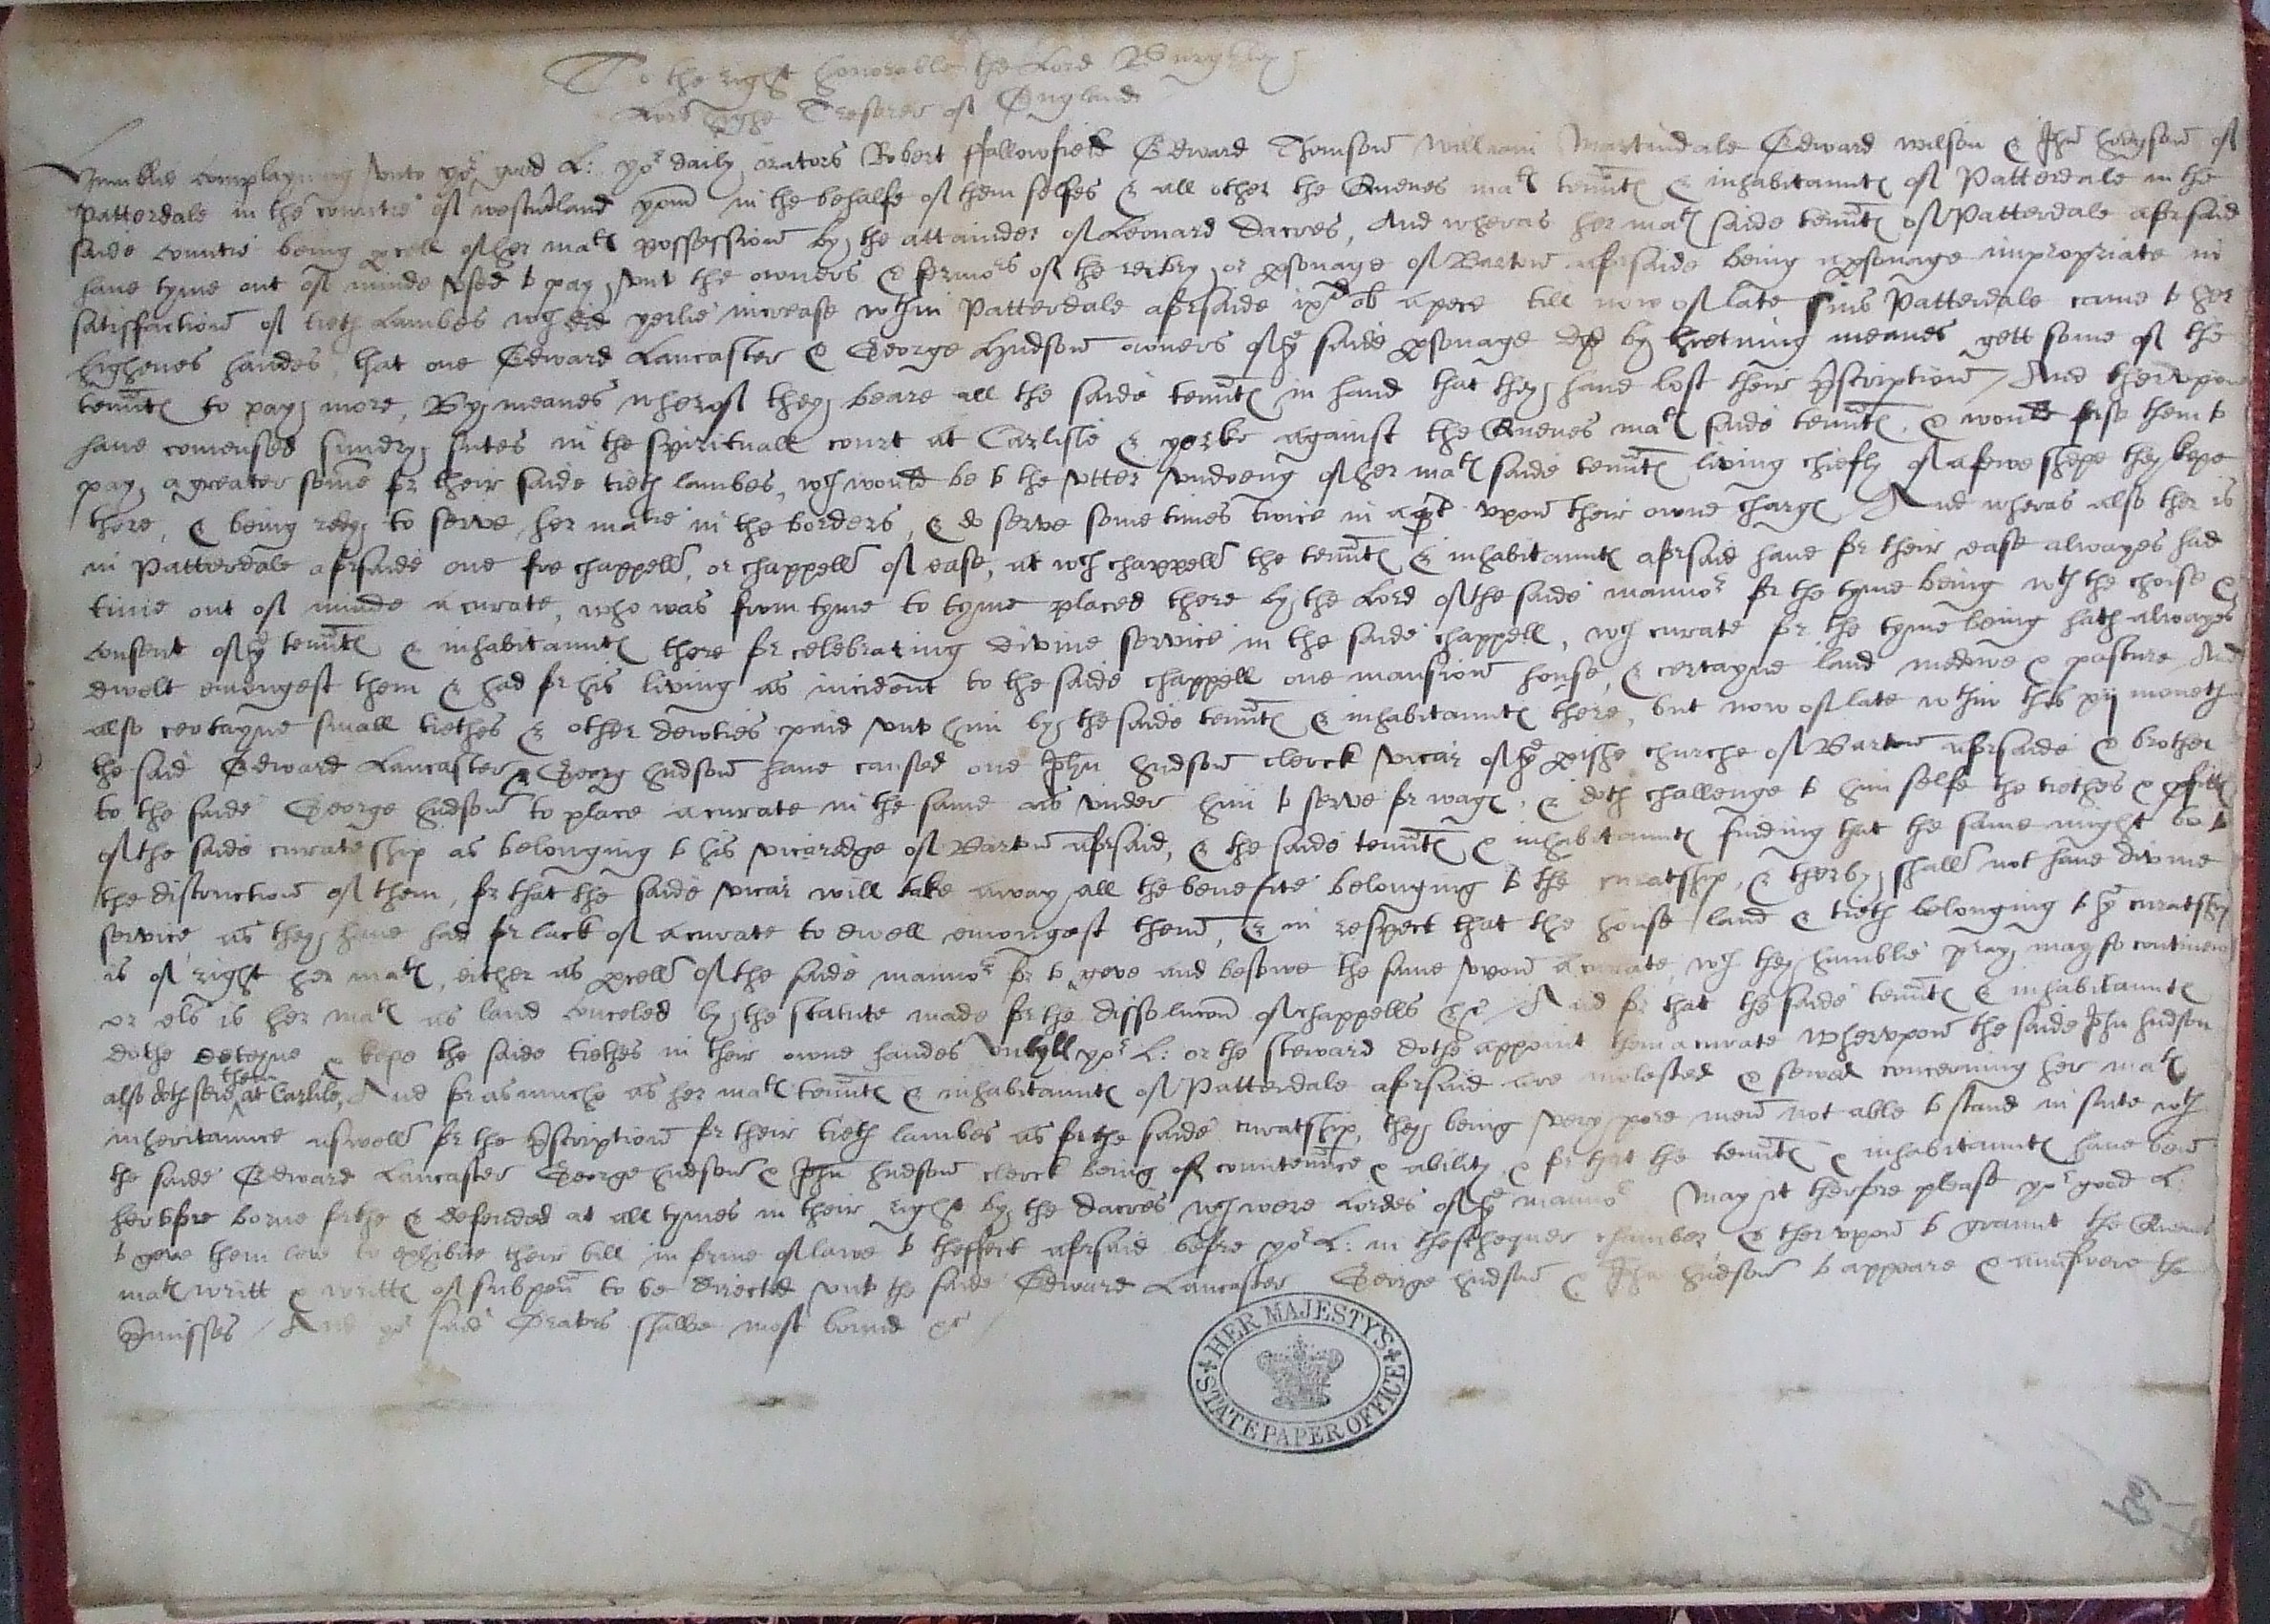 To the right honorable the Lord Burghley
Lord highe Treserer of England
Humblie complayning vnto yor good L: yor daily orators Robert ffallowfield Edward Thomson William Martindale Edward wilson & Jhn hodgson of
Patterdale in the countie of westmland yomn in the behalfe of them selfes & all other the Quenes matꝭ tennͭꝭ & inhabitanntꝭ of Patterdale in the
saide countie being pcell of her matꝭ possession by the attainder of Leonard Dacres, And wheras her matꝭ saide tenntꝭ of Patterdale aforsaid
haue tyme out of minde vsed to pay vnto the owners & fermors of the rectory or psonage of Barton aforsaide being a psonage impropriate in
satisffaction of tieth Lambes wch did yerlie increase wthin Patterdale aforsaide ixd ob a pece till now of late sins Patterdale came to her
highenes handes, that one Edward Lancaster & George Hudson owners of ye saide psonage did by meanes gett some of the
tenntꝭ to pay more, By meanes wherof they beare all the saide tenntꝭ in hand that they haue lost their pscription / And thervpon
haue comensed sundry sutes in the spirituall court at Carlisle & yorke against the Quenes matꝭ saide tenntꝭ, & would forse them to
pay a greater some for their saide tieth lambes, wch would be to the vtter vndoeng of her matꝭ saide tenntꝭ living chiefly of a fewe shepe they kepe
there, & being redy to serve her matie in the borders, & do serve some times twice in a vpon their owne chargꝭ And wheras also ther is
in Patterdale aforsaide one fre chappell, or chappell of ease, at wch chappell the tenntꝭ & inhabitanntꝭ aforsaid haue for their ease alwayes had
time out of minde a curate, who was from tyme to tyme placed there by the Lord of the saide mannor for the tyme being wth the choise &
consent of ye tenntꝭ & inhabitanntꝭ there for celebrating divine service in the saide chappell, wch curate for the tyme being hath alwayes
dwelt emongest them & had for his living as incident to the saide chappell one mansion house, & certayne land medowe & pasture And
also certayne small tiethes & other dewties paid vnto him by the saide tenntꝭ & inhabitanntꝭ there, but now of late wthin this xij moneth
the said Edward Lancaster & Georg hudson haue caused one John hudson clerck vicar of ye pishe churche of Barton aforsaide & brother
to the saide George hudson to place a curate in the same as vnder him to serve for wagꝭ, & doth challenge to him selfe the tiethes & pfittꝭ
of the saide curateship as belonging to his vicaredge of Barton aforsaid, & the saide tenntꝭ & inhabitanntꝭ finding that the same might be to
the distruction of them, for that the saide vicar will take away all the benefite belonging to the curatship, & therby shall not haue divine
service as they haue had for lack of a curate to dwell emongest them, & in respect that the house land & tieth belonging to ye curatship
is of right her matꝭ, either as pcell of the saide mannor or to geve and bestowe the same vpon a curate, wch they humblie pray may so continewe
or els is her matꝭ as land conceled by the statute made for the dissolucon of chappells &c / And for that the saide tenntꝭ & inhabitanntꝭ
dothe deteyne & kepe the saide tiethes in their owne handes vntyll yor L: or the steward dothe appoint them a curate wherevpon the saide Jhn hudson
also doth serve them at Carlile, And for asmuche as her matꝭ tenntꝭ & inhabitanntꝭ of Patterdale aforsaid are molested & sewed concerning her matꝭ
inheritannce aswell for the pscription for their tieth lambes as for the saide curatship, they being very pore men not able to stand in sute wth
the saide Edward Lancaster George hudson & John hudson clerck being of countennce & ability & for that the tenntꝭ & inhabitanntꝭ haue ben
hertofore borne forthe & defended at all tymes in their right by the dacres wch were Lordes of ye mannor May it therfore please yor good L:
to geve them leve to exhibite their bill in forme of lawe to theffect aforsaid before yor L: in theschequer chamber & thervpon to graunt the Quenes
matꝭ writt & writtꝭ of subpena to be directed vnto the saide Edward Lancaster George hudson & Jhn hudson to appeare & answere the
pmisses / And yor said Orators shalbe most bound &c /
HER MAJESTY'S
STATE PAPER OFFICE